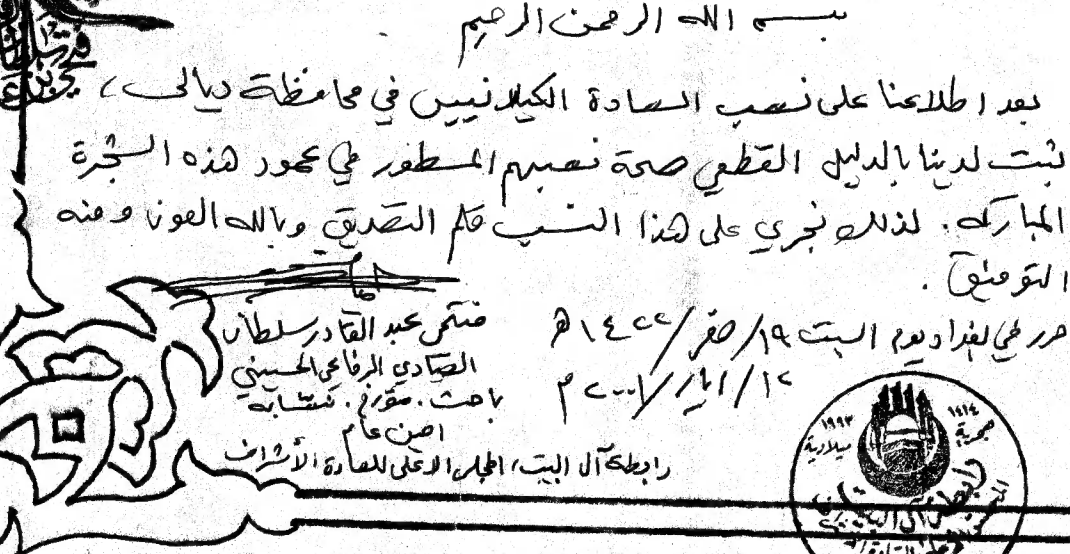 بسم الله الرحمن الرحيم
بعد اطلاعنا على نسب السادة الكيلانيين في محافظة ديالى،
ثبت لدينا بالدليل القطعي صحة نسبهم المسطور في عمود هذه الشجرة
المباركة. لذلك نجري على هذا النسب قلم التصديق وبالله العون ومنه
التوفيق.
حرر في بغداد يوم السبت ١٩/صفر/١٤٢٢هـ
١٢/ايار/٢٠٠١م
فتحي عبد القادر سلطان
الصيادي الرفاعي الحسيني
باحث. مؤرخ. نسّابة
امين عام
رابطة آل البيت، المجلس الاعلى للسادة الأشراف
١٩٩٣ ميلادية
١٤١٤ هجرية